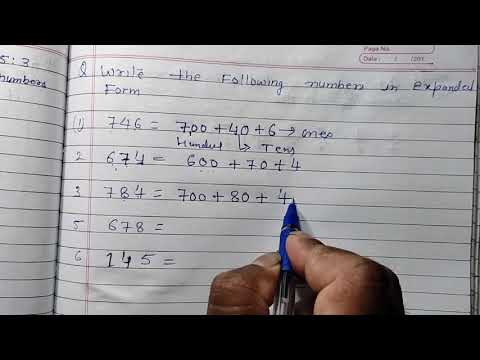 5:3
numbers
Page No.
Date : / /201
Q Write the Following numbers in expanded
Form
(1) 746 = 700 + 40 + 6 → ones
Hundred → Tens
2 674 = 600 + 70 + 4
3 784 = 700 + 80 + 4
5 678 =
6 145 =